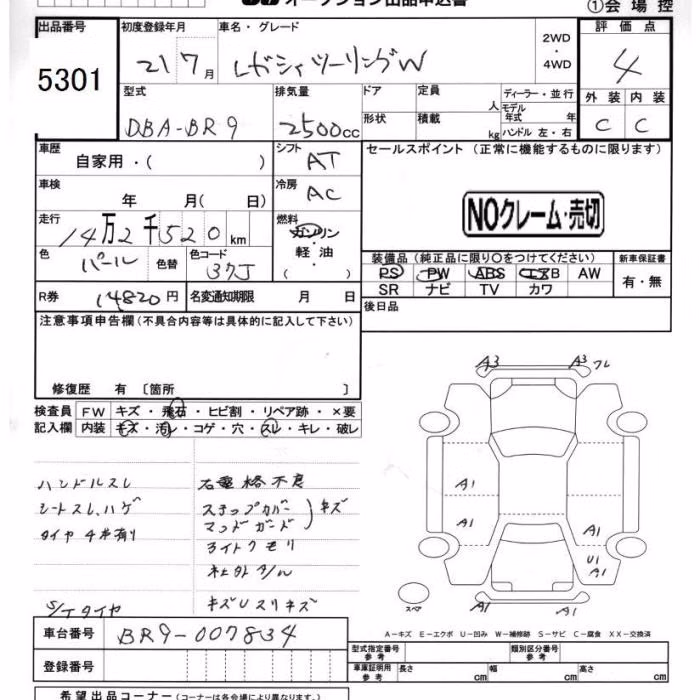 オークション出品申込書
①会場控
出品番号 初度登録年月 車名・グレード 評価点
5301 21 7月 レガシィツーリングW 2WD・4WD 4
型式 排気量 ドア 定員 人 ディーラー・並行 外装 内装
DBA-BR9 2500cc 形状 積載 kg モデル年式 年 ハンドル 左・右 C C
車歴 自家用・( ) シフト AT セールスポイント (正常に機能するものに限ります)
車検 年 月( 日) 冷房 AC
NOクレーム・売切
走行 14万2千520km 燃料 ガソリン・軽油・( )
色 パール 色替 色コード 37J
装備品 (純正品に限り○をつけてください) 新車保証書
PS PW ABS エアB AW 有・無
SR ナビ TV カワ
R券 14820円 名変通知期限 月 日
後日品
注意事項申告欄 (不具合内容等は具体的に記入して下さい)
修復歴 有 〔箇所 〕
検査員記入欄 FW キズ・飛石・ヒビ割・リペア跡・×要
内装 キズ・汚レ・コゲ・穴・スレ・キレ・破レ
A3 A3 フレ
ハンドルスレ 右電格不良
シートスレ、ハゲ ステップカバー
マッドガード キズ
タイヤ4本有り
ライトクモリ
社外アルミ
S/Tタイヤ
A1 A1 A1 U1 A1
スペア A1 A1
A-キズ E-エクボ U-凹み W-補修跡 S-サビ C-腐食 XX-交換済
車台番号 BR9-007834
型式指定番号 参考 類別区分番号 参考
登録番号
車庫証明用 参考 長さ cm 幅 cm 高さ cm
希望出品コーナー (コーナーは各会場により異なります。)